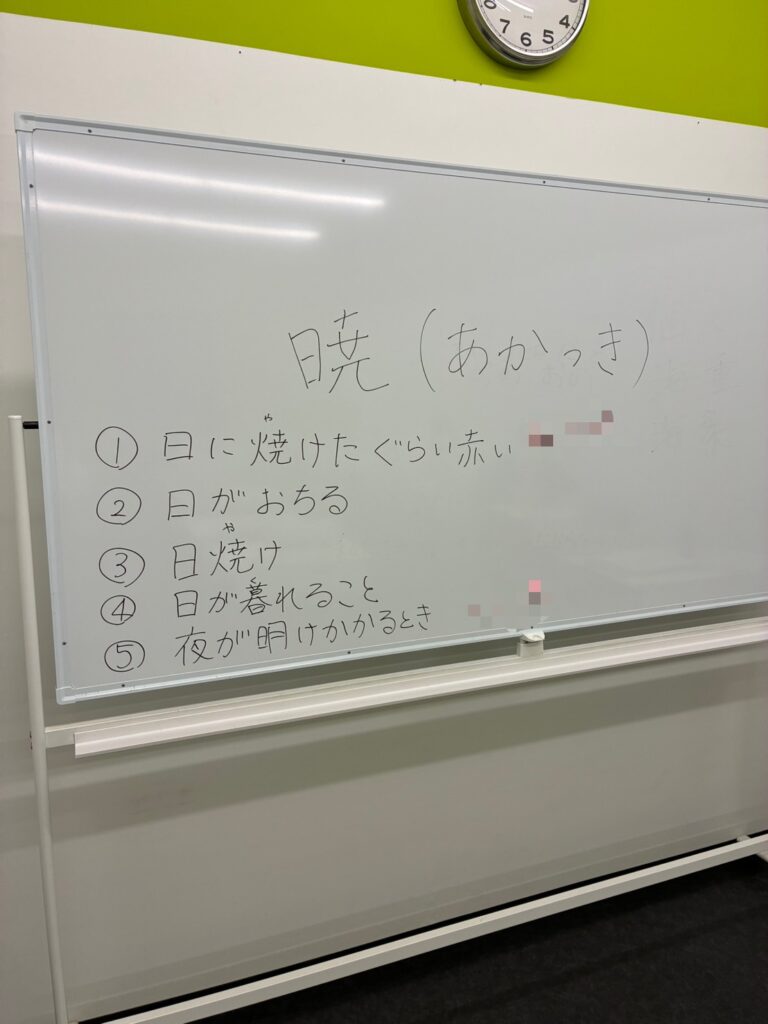 暁(あかつき)
① 日に焼けたぐらい赤い
② 日がおちる
③ 日焼け
④ 日が暮れること
⑤ 夜が明けかかるとき